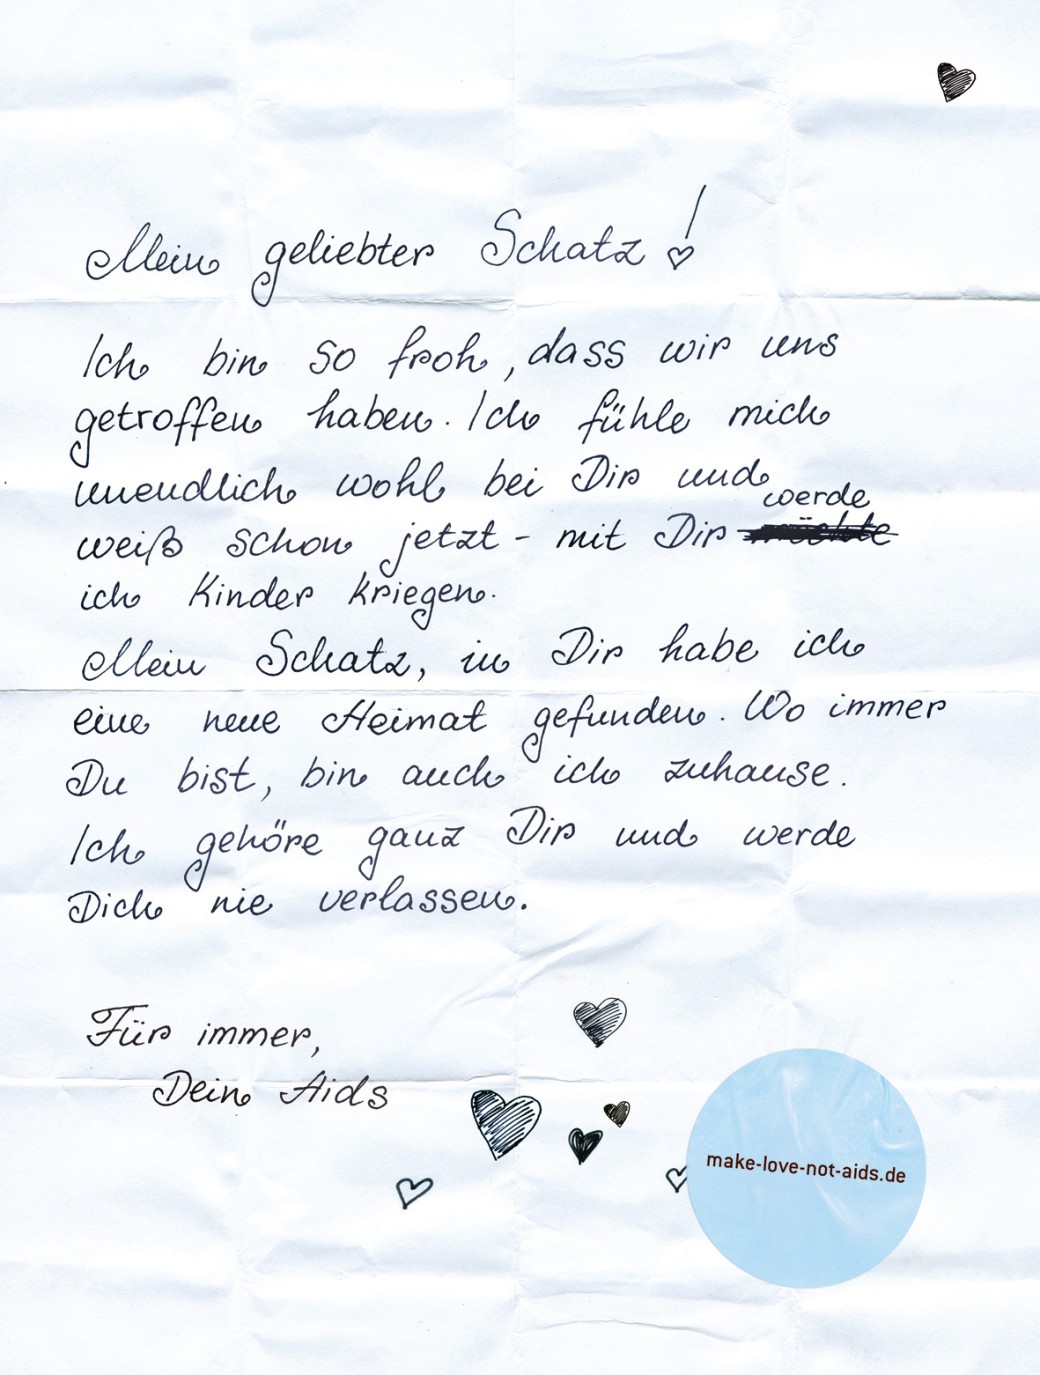 Mein geliebter Schatz!
Ich bin so froh, dass wir uns
getroffen haben. Ich fühle mich
unendlich wohl bei Dir und
werde
weiß schon jetzt - mit Dir möchte
ich Kinder kriegen.
Mein Schatz, in Dir habe ich
eine neue Heimat gefunden. Wo immer
Du bist, bin auch ich zuhause.
Ich gehöre ganz Dir und werde
Dich nie verlassen.
Für immer,
Dein Aids
make-love-not-aids.de